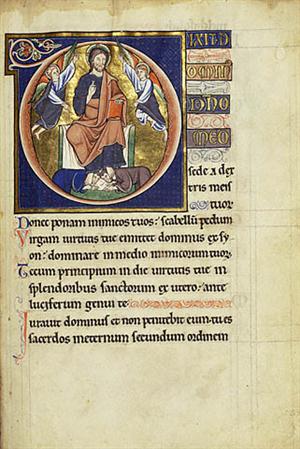 IXIT D
OMIN
DNO
MEO
sede a dex
tris meis
tuor
Donec ponam inimicos tuos: scabellum pedum
Virgam virtutis tue emittet dominus ex sy
on: dominare in medio inimicorum tuor
Tecum principium in die virtutis tue in
splendoribus sanctorum ex utero: ante
luciferum genui te
Iuravit dominus et non penitebit eum: tu es
sacerdos ineternum secundum ordinem